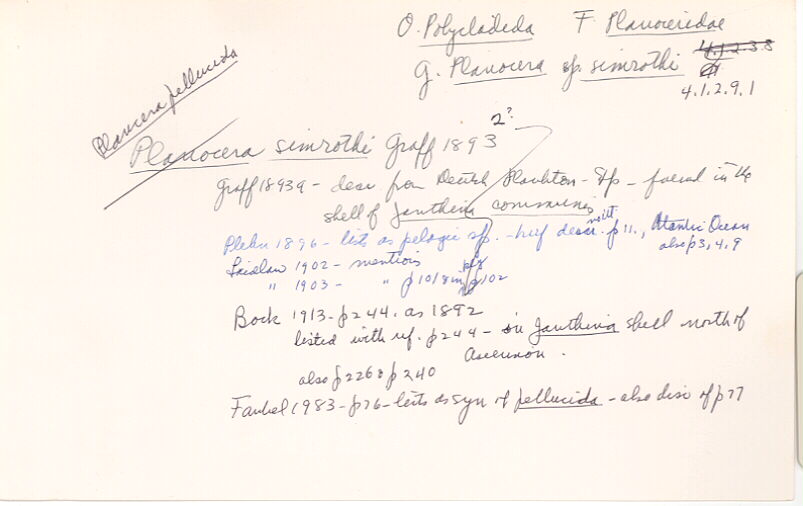 O. Polycladeda F. Planoceridae
G. Planocera sp. simrothi 4.1.2.3.8
4.1.2.9.1
Planocera pellucida
2?
Planocera simrothi Graff 1893
Graff 1893a - descr. from Deutsch Plankton - Exp - found in the
shell of Janthina communis
Plehn 1896 - lists as pelagic sp. - brief descr. p 11., Atlantic Ocean
also p3, 4, 9
Laidlaw 1902 - mentions
" 1903 - " p 10/8 in p102
Bock 1913 - p244. as 1892
listed with ref. p244 - in Janthina shell north of
Ascension.
also p226 & p240
Faubel 1983 - p76 - lists as syn of pellucida - also disc of p77